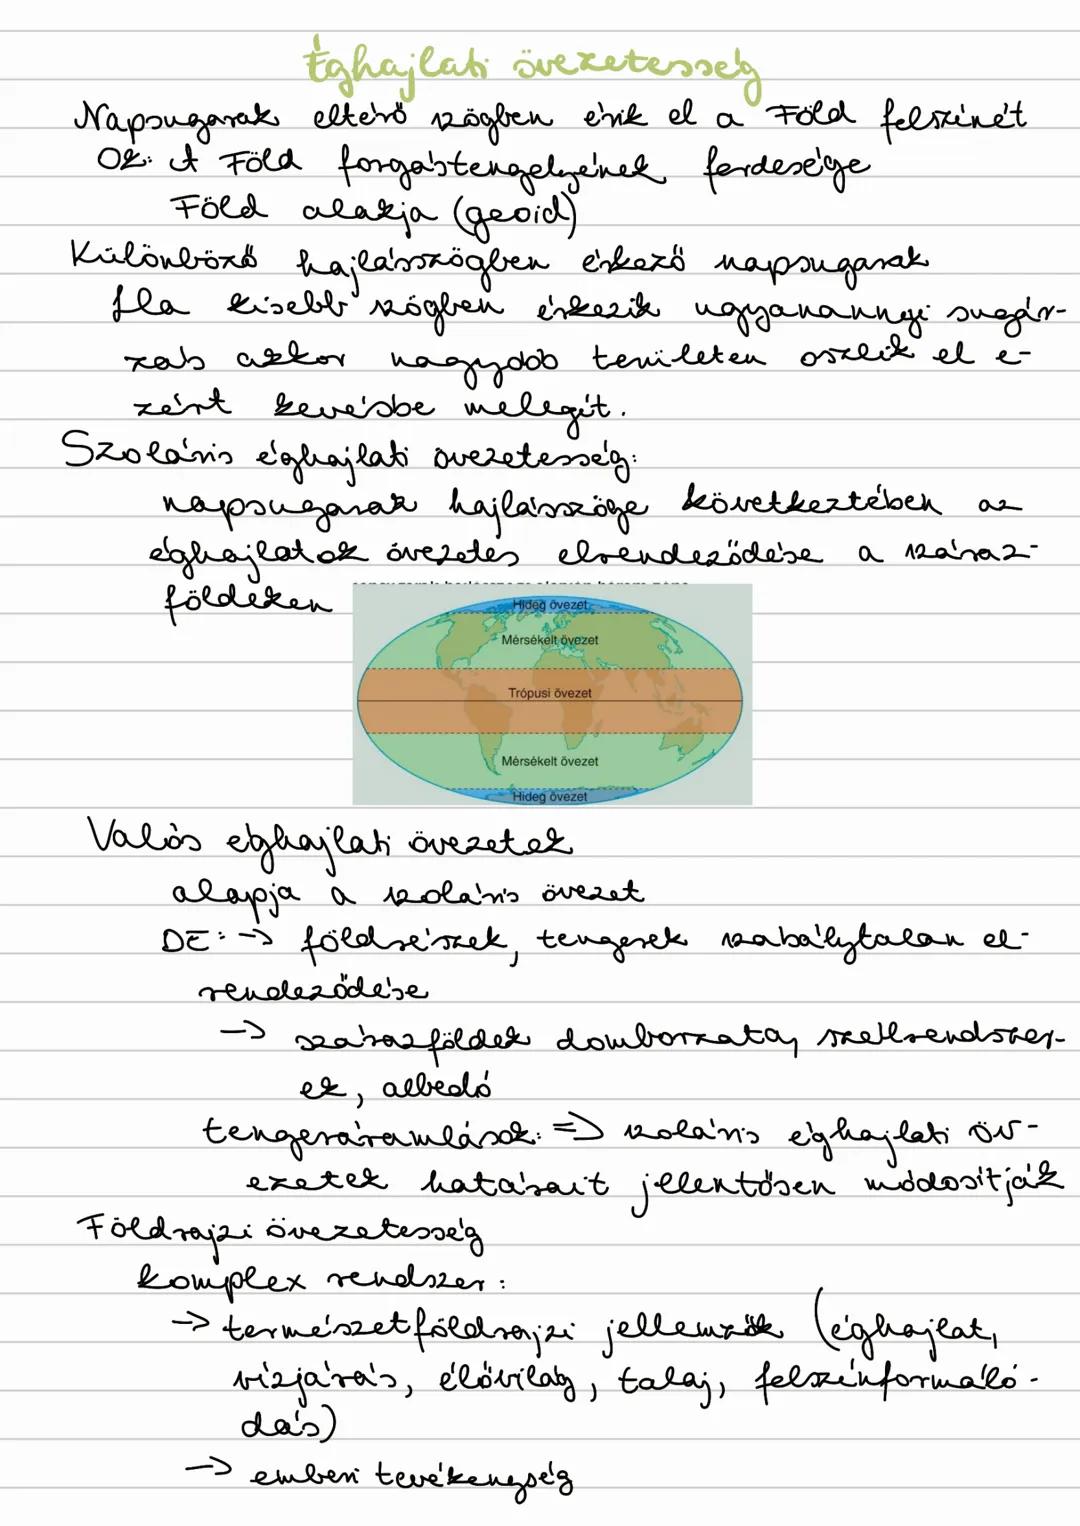 Éghajlati övezetesség
Napsugarak eltérő szögben érik el a Föld felszínét
Ok: A Föld forgástengelyének ferdesége
Föld alakja (geoid)
Különböző hajlásszögben érkező napsugarak
Ha kisebb szögben érkezik ugyanannyi sugár-
zás akkor nagyobb területen oszlik el e-
zért kevésbe melegít.
Szoláris éghajlati övezetesség:
napsugarak hajlásszöge következtében az
éghajlatok övezetes elrendeződése a száraz-
földeken
Hideg övezet
Mérsékelt övezet
Trópusi övezet
Mérsékelt övezet
Hideg övezet
Valós éghajlati övezetek
alapja a szoláris övezet
DE: -> földrészek, tengerek szabálytalan el-
rendeződése
-> szárazföldek domborzata, szélrendszer-
ek, albedó
tengeráramlások: => szoláris éghajlati öv-
ezetek hatásait jelentősen módosítják
Földrajzi övezetesség
komplex rendszer:
-> természetföldrajzi jellemzők (éghajlat,
vízjárás, élővilág, talaj, felszínformáló-
dás)
-> emberi tevékenység